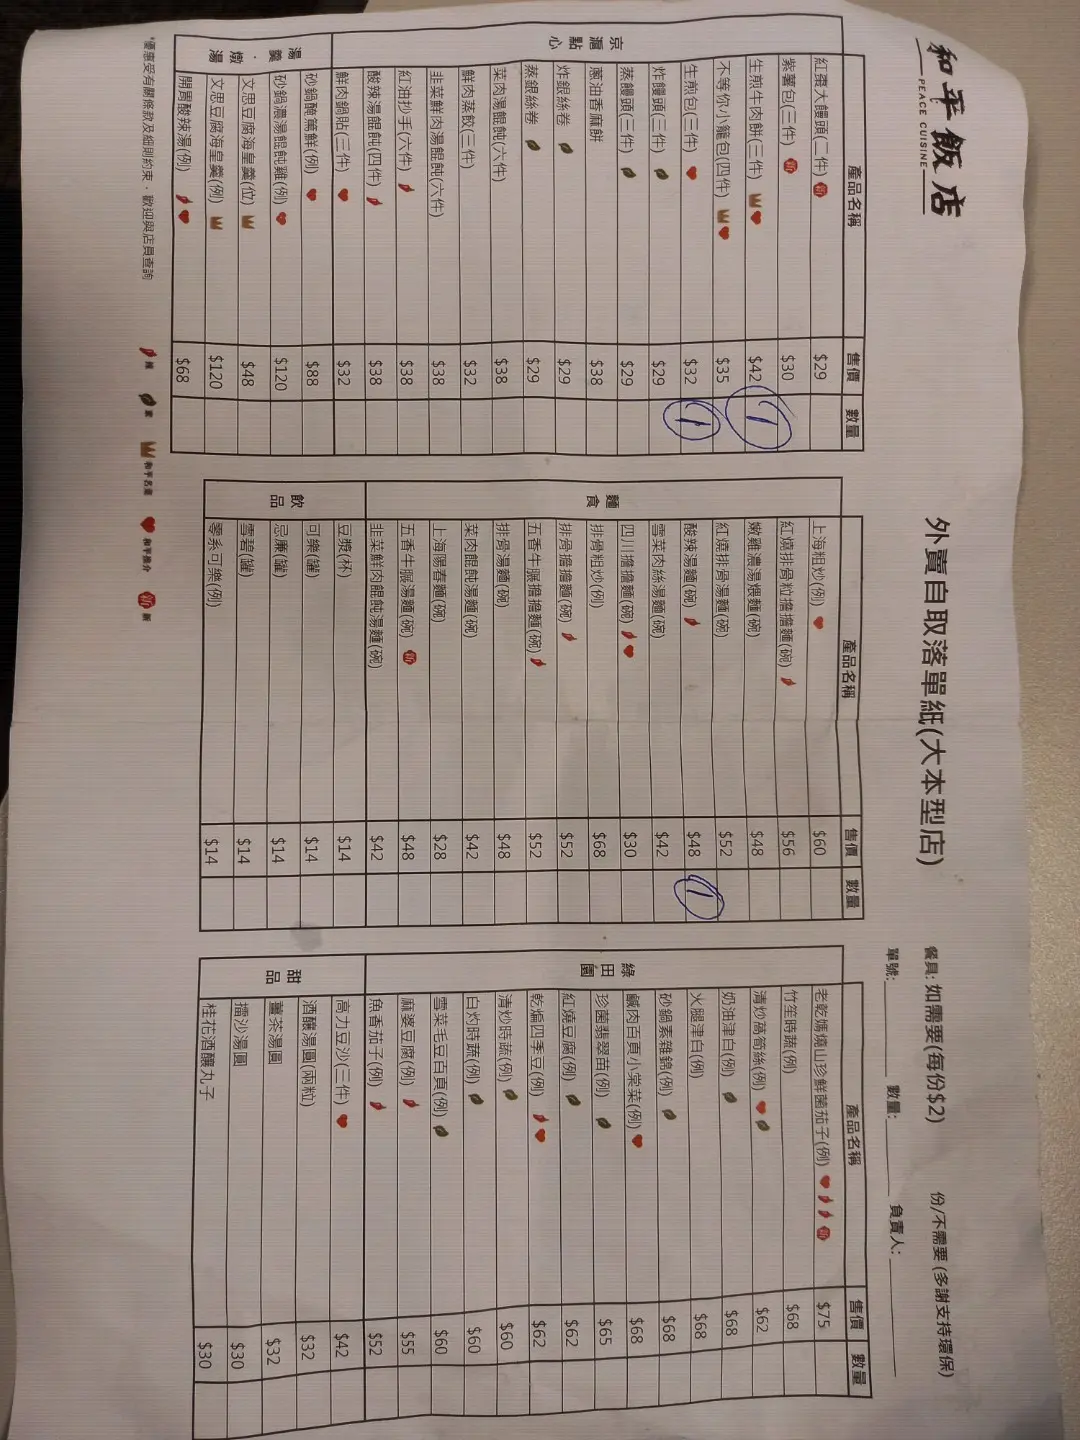 和平飯店
PEACE CUISINE
外賣自取落單紙(大本型店)
餐具: 如需要(每份$2) 份/不需要 (多謝支持環保)
單號: 數量: 負責人:
產品名稱 售價 數量
京滬點心
紅棗大饅頭(二件) 新 $29
紫薯包(三件) 新 $30
生煎牛肉餅(三件) $42 1
不等你小籠包(四件) $35
生煎包(三件) $32 1
炸饅頭(三件) $29
蒸饅頭(三件) $29
蔥油香麻餅 $38
炸銀絲卷 $29
蒸銀絲卷 $29
菜肉湯餛飩(六件) $38
鮮肉蒸餃(三件) $32
韭菜鮮肉湯餛飩(六件) $38
紅油抄手(六件) $38
酸辣湯餛飩(四件) $38
鮮肉鍋貼(三件) $32
湯羹·燉湯
砂鍋醃篤鮮(例) $88
砂鍋濃湯餛飩雞(例) $120
文思豆腐海皇羹(位) $48
文思豆腐海皇羹(例) $120
開胃酸辣湯(例) $68
產品名稱 售價 數量
麵食
上海粗炒(例) $60
紅燒排骨粒擔擔麵(碗) $56
嫩雞濃湯煨麵(碗) $48
紅燒排骨湯麵(碗) $52
酸辣湯麵(碗) $48 1
雪菜肉絲湯麵(碗) $42
四川擔擔麵(碗) $30
排骨粗炒(例) $68
排骨擔擔麵(碗) $52
五香牛𦟌擔擔麵(碗) $52
排骨湯麵(碗) $48
菜肉餛飩湯麵(碗) $42
上海陽春麵(碗) $28
五香牛𦟌湯麵(碗) 新 $48
韭菜鮮肉餛飩湯麵(碗) $42
飲品
豆漿(杯) $14
可樂(罐) $14
忌廉(罐) $14
雪碧(罐) $14
零系可樂(例) $14
產品名稱 售價 數量
綠田園
老乾媽燒山珍鮮菌茄子(例) 新 $75
竹笙時蔬(例) $68
清炒萵筍絲(例) $62
奶油津白(例) $68
火腿津白(例) $68
砂鍋素雜錦(例) $68
鹹肉百頁小棠菜(例) $68
珍菌翡翠苗(例) $65
紅燒豆腐(例) $62
乾煸四季豆(例) $62
清炒時蔬(例) $60
白灼時蔬(例) $60
雪菜毛豆百頁(例) $60
麻婆豆腐(例) $55
魚香茄子(例) $52
甜品
高力豆沙(三件) $42
酒釀湯圓(兩粒) $32
薑茶湯圓 $32
擂沙湯圓 $30
桂花酒釀丸子 $30
*優惠受有關條款及細則約束,歡迎與店員查詢
辣 素 和平名產 和平推介 新 新